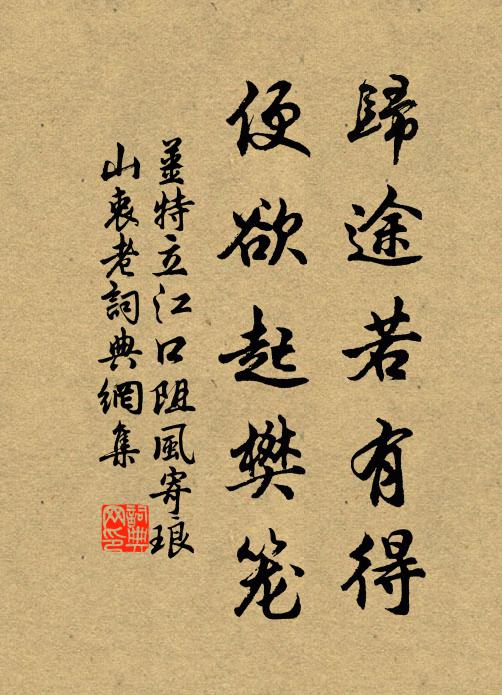 歸途若有得
便欲起樊笼
薑特立江口阻風寄琅
山衷老詞典網集
詞典网印